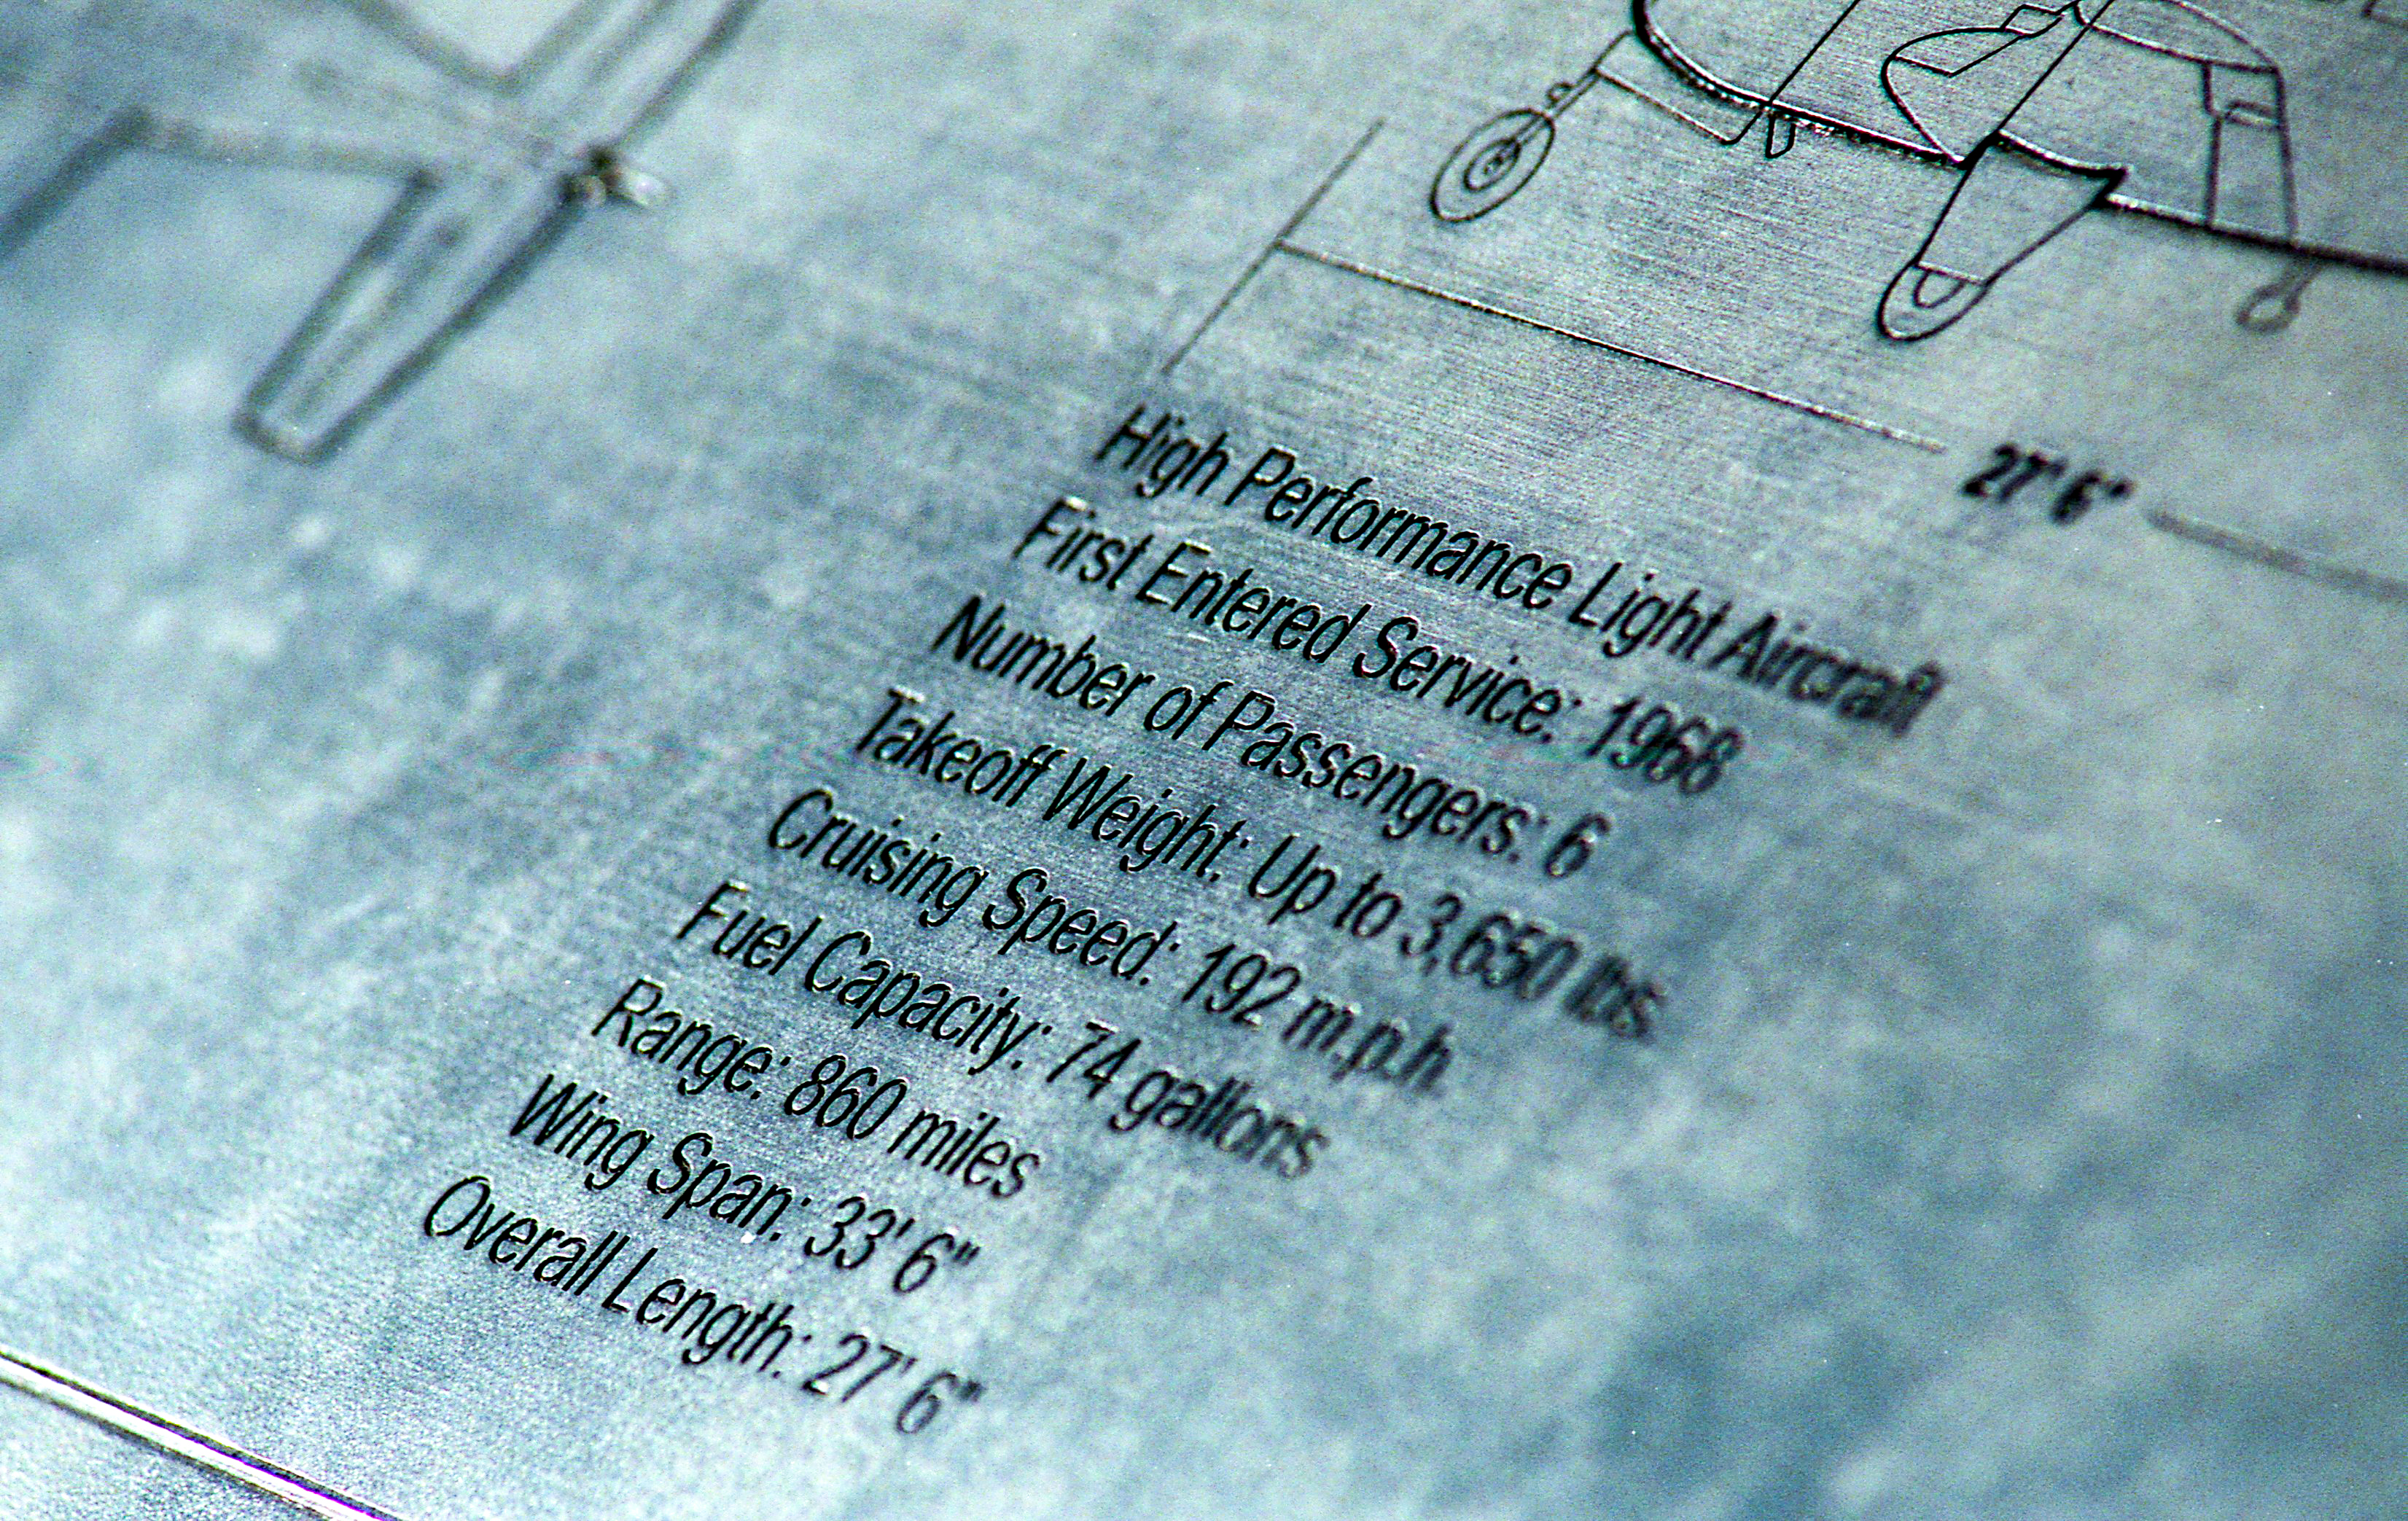 27' 6"
High Performance Light Aircraft
First Entered Service: 1968
Number of Passengers: 6
Takeoff Weight: Up to 3,650 lbs
Cruising Speed: 192 m.p.h.
Fuel Capacity: 74 gallons
Range: 860 miles
Wing Span: 33' 6"
Overall Length: 27' 6"